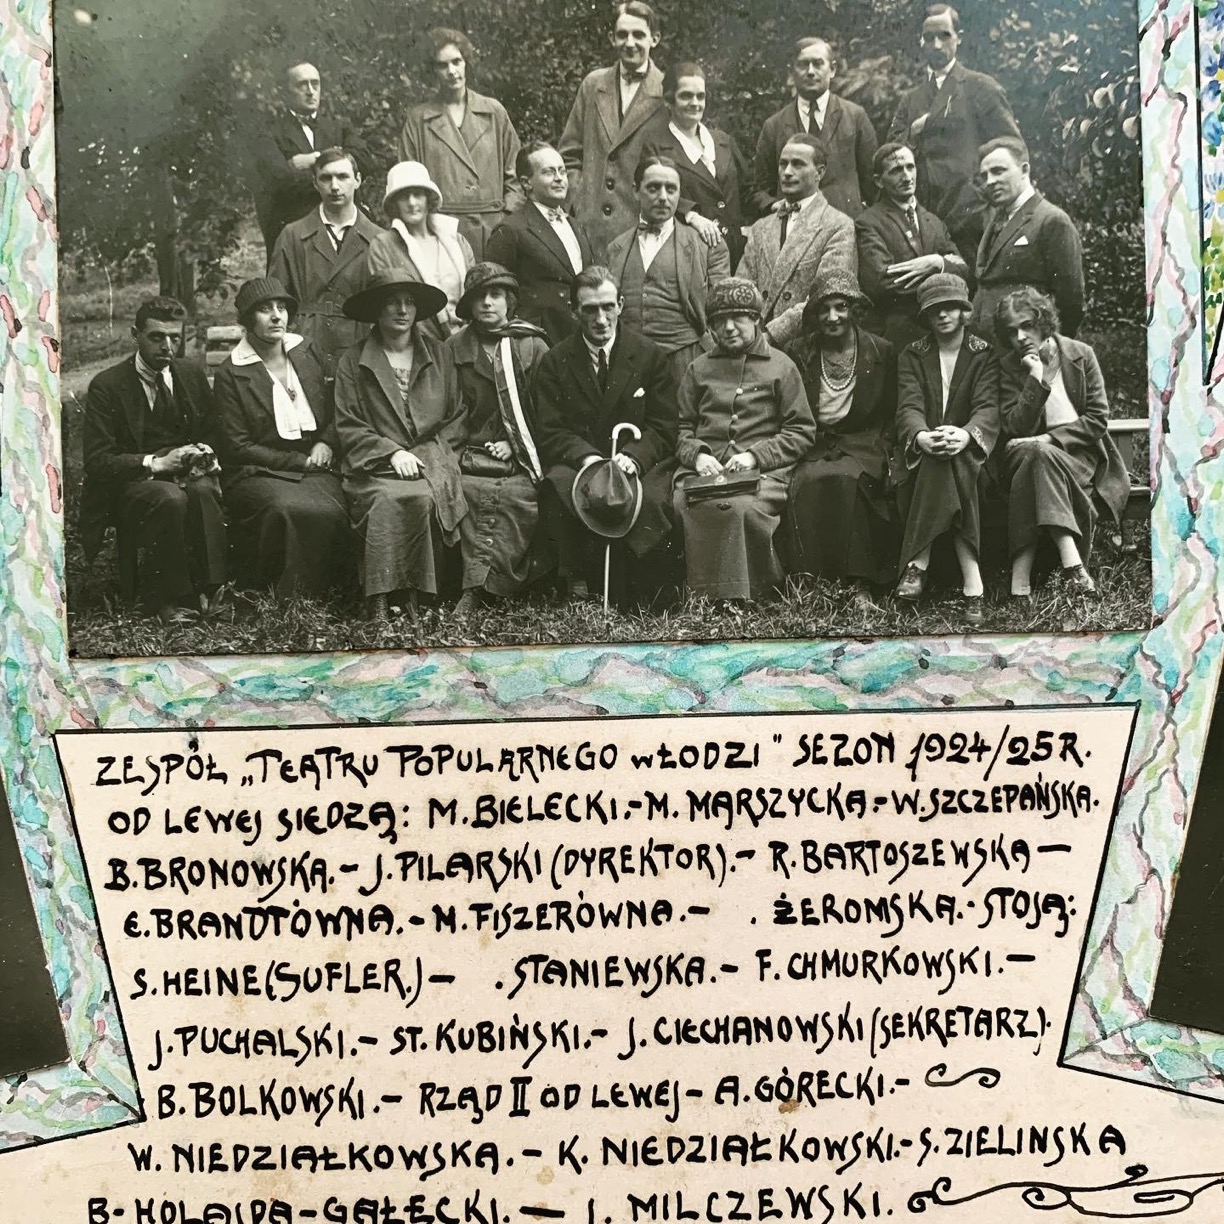 ZESPÓŁ „TEATRU POPULARNEGO W ŁODZI" SEZON 1924/25R.
OD LEWEJ SIEDZĄ: M. BIELECKI.-M. MARSZYCKA.-W. SZCZEPAŃSKA.
B. BRONOWSKA.-J. PILARSKI (DYREKTOR).-R. BARTOSZEWSKA-
E. BRANDTÓWNA.-M. FISZERÓWNA.- . ŻEROMSKA.-STOJĄ:
S. HEINE (SUFLER.)- . STANIEWSKA.-F. CHMURKOWSKI.-
J. PUCHALSKI.-ST. KUBIŃSKI.-J. CIECHANOWSKI (SEKRETARZ)-
B. BOLKOWSKI.-RZĄD II OD LEWEJ-A. GÓRECKI.-
W. NIEDZIAŁKOWSKA.-K. NIEDZIAŁKOWSKI.-S. ZIELINSKA
GAŁĘCKI.- MILCZEWSKI.